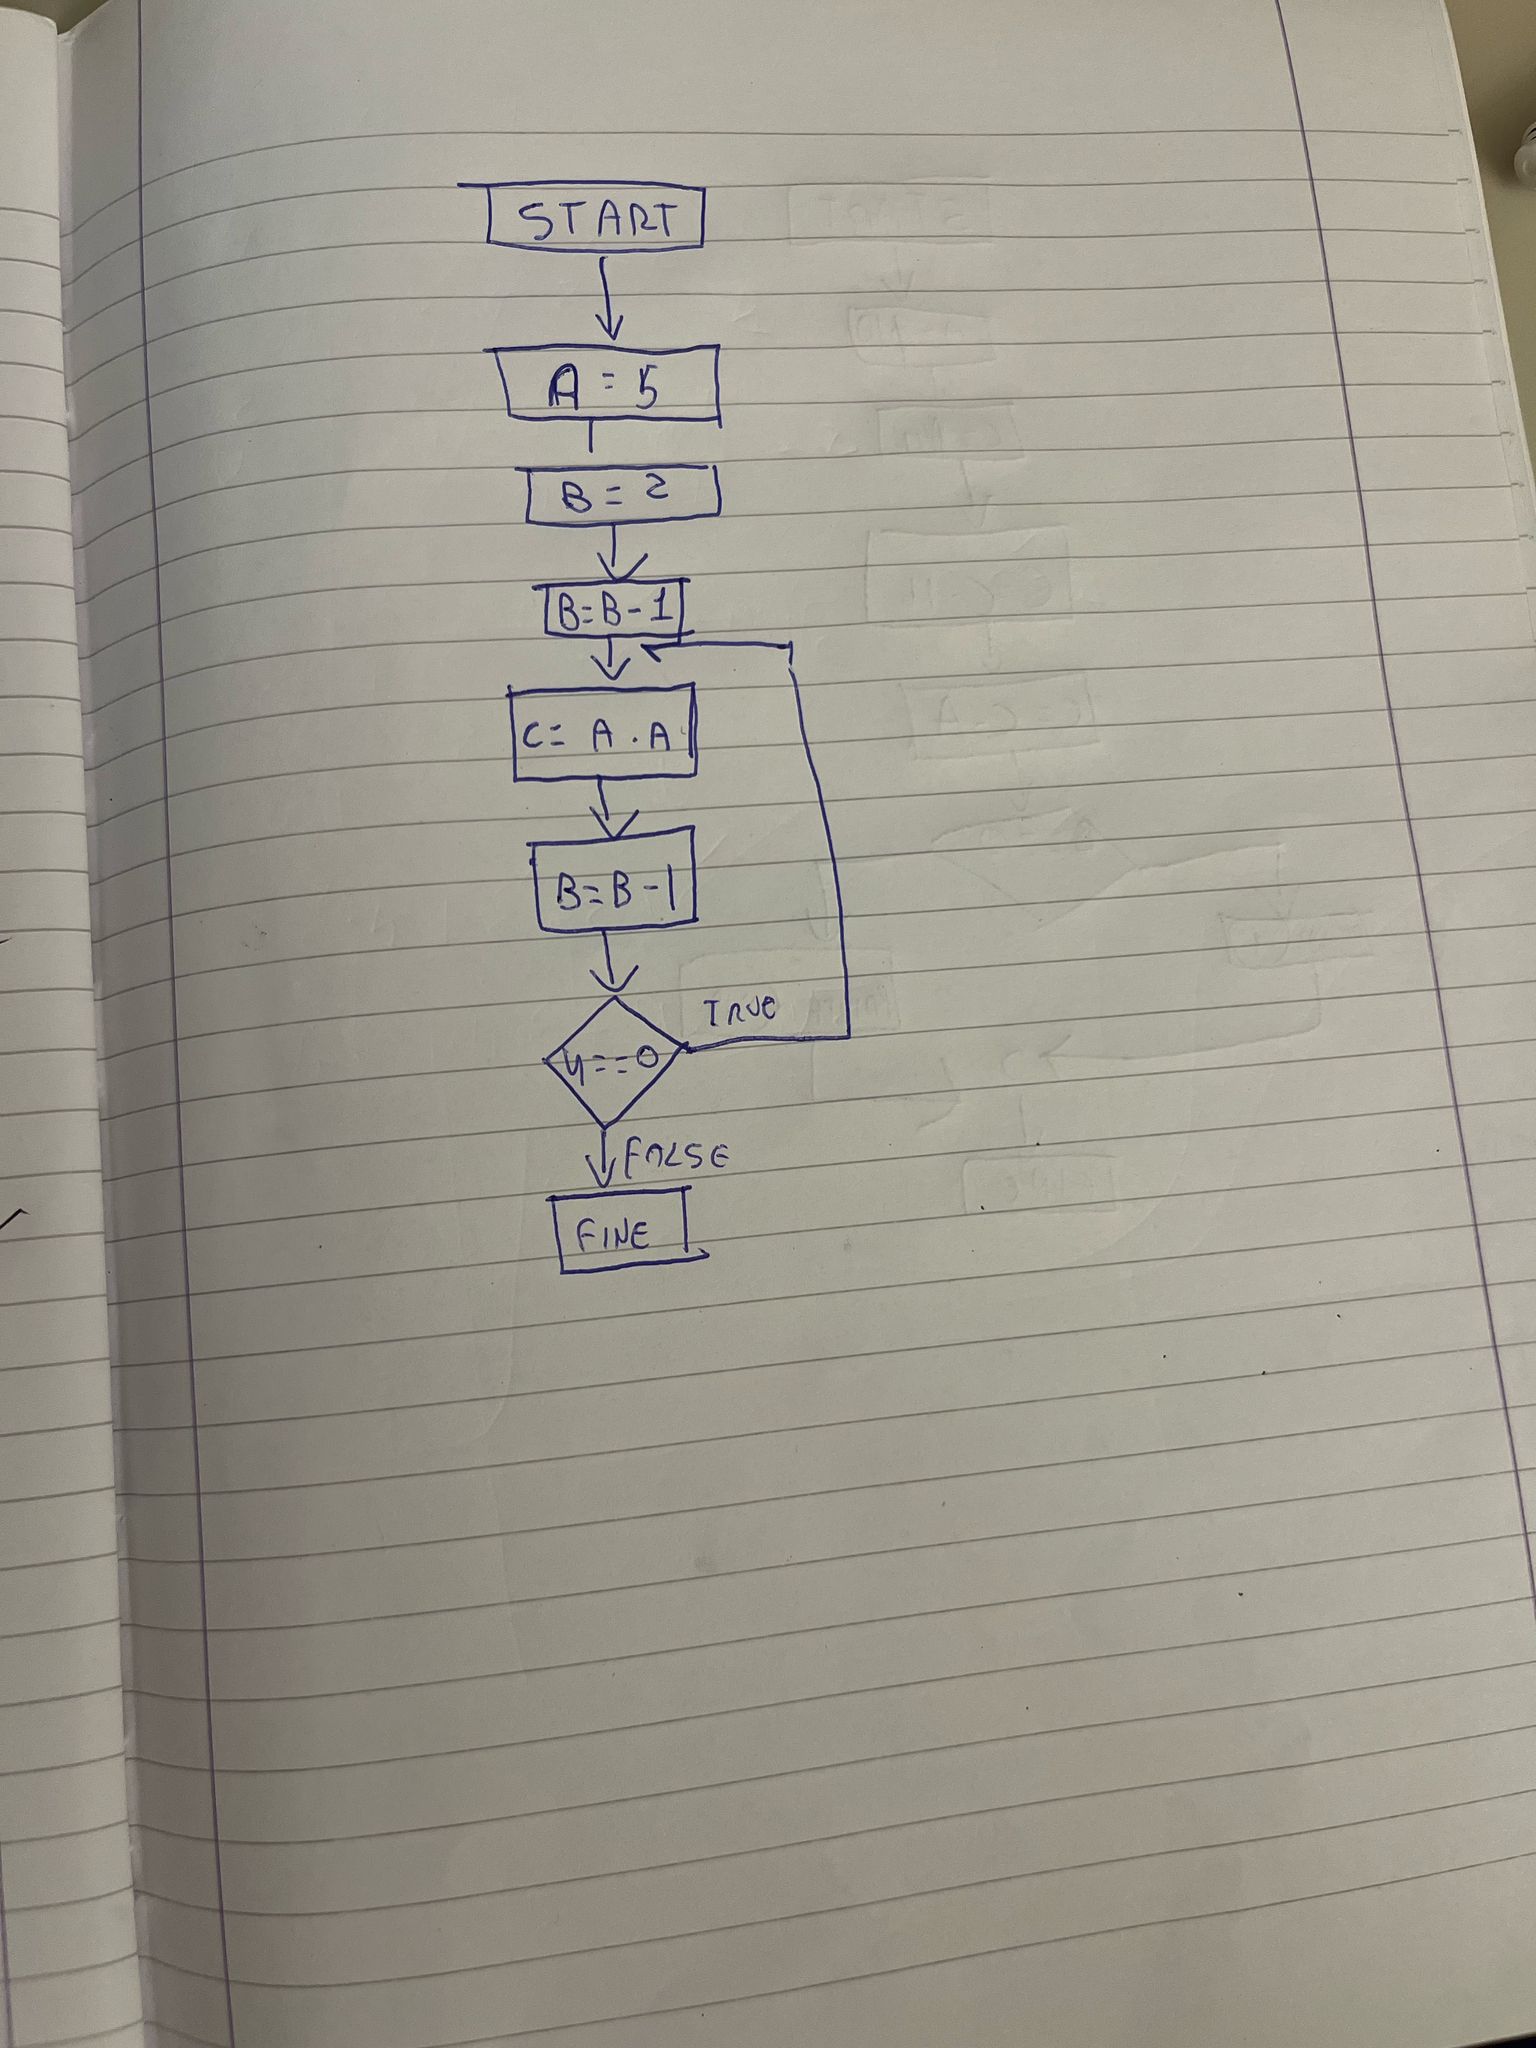 START
A = 5
B = 2
B=B-1
C= A . A
B=B-1
y==0
TRUE
FALSE
FINE